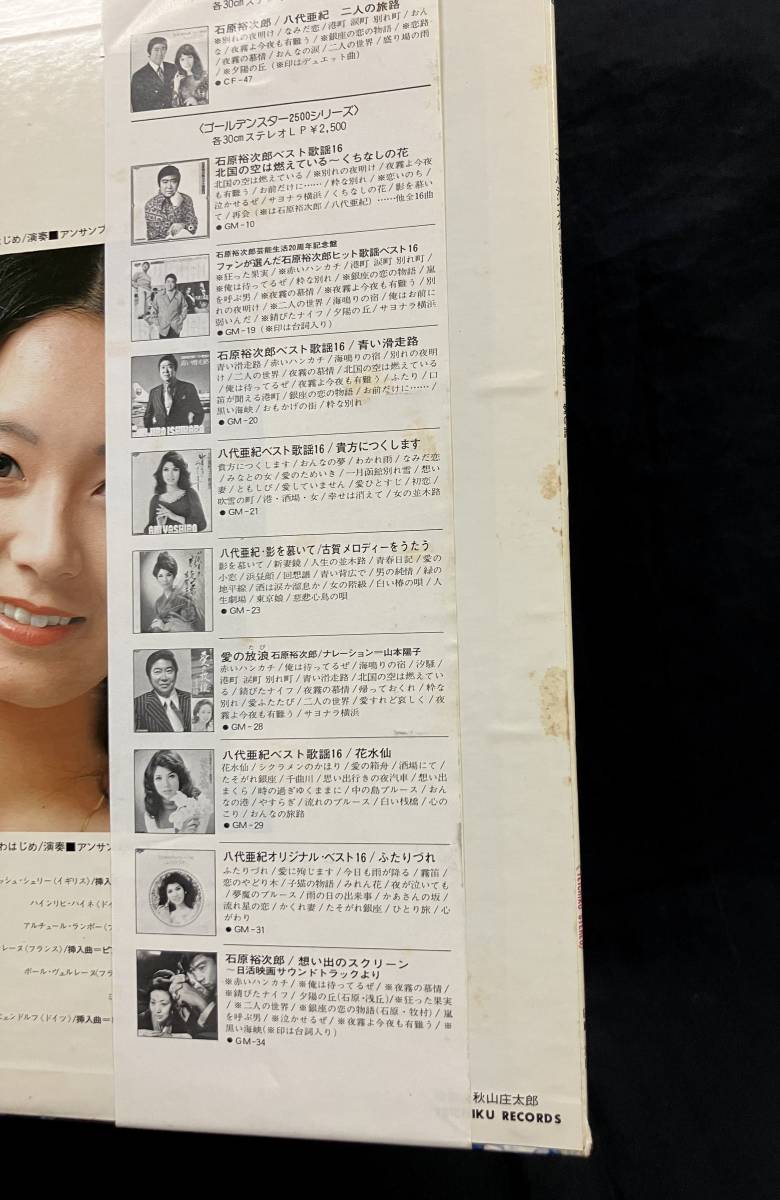 各30cmステレオLP
石原裕次郎/八代亜紀 二人の旅路
※別れの夜明け/なみだ恋/港町 涙町 別れ町/おん
な/夜霧よ今夜も有難う/※銀座の恋の物語/※恋路
/夜霧の慕情/おんなの涙/二人の世界/盛り場の雨
/※夕陽の丘(※印はデュエット曲)
●CF-47
〈ゴールデンスター2500シリーズ〉
各30cmステレオLP¥2,500
石原裕次郎ベスト歌謡16
北国の空は燃えている〜くちなしの花
北国の空は燃えている/※別れの夜明け/夜霧よ今夜
も有難う/お前だけに……/粋な別れ/※恋いのち/
泣かせるぜ/サヨナラ横浜/くちなしの花/影を慕い
て/再会(※は石原裕次郎/八代亜紀)……他全16曲
●GM-10
石原裕次郎芸能生活20周年記念盤
ファンが選んだ石原裕次郎ヒット歌謡ベスト16
※狂った果実/※赤いハンカチ/港町 涙町 別れ町/
※俺は待ってるぜ/粋な別れ/※銀座の恋の物語/嵐
を呼ぶ男/※夜霧の慕情/※夜霧よ今夜も有難う/別
れの夜明け/※二人の世界/海鳴りの宿/俺はお前に
弱いんだ/※錆びたナイフ/夕陽の丘/サヨナラ横浜
●GM-19(※印は台詞入り)
石原裕次郎ベスト歌謡16/青い滑走路
青い滑走路/赤いハンカチ/海鳴りの宿/別れの夜明
け/二人の世界/夜霧の慕情/北国の空は燃えている
/俺は待ってるぜ/夜霧よ今夜も有難う/ふたり/口
笛が聞える港町/銀座の恋の物語/お前だけに……/
黒い海峡/おもかげの街/粋な別れ
●GM-20
八代亜紀ベスト歌謡16/貴方につくします
貴方につくします/おんなの夢/わかれ雨/なみだ恋
/みなとの女/愛のためいき/一月函館別れ雪/想い
妻/ともしび/愛していません/愛ひとすじ/初恋/
吹雪の町/港・酒場・女/幸せは消えて/女の並木路
●GM-21
AKI YASHIRO
八代亜紀・影を慕いて/古賀メロディーをうたう
影を慕いて/新妻鏡/人生の並木路/青春日記/愛の
小窓/浜昼顔/回想譜/青い背広で/男の純情/緑の
地平線/酒は涙か溜息か/女の階級/白い椿の唄/人
生劇場/東京娘/慈悲心鳥の唄
●GM-23
愛の放浪 石原裕次郎/ナレーション―山本陽子
たび
赤いハンカチ/俺は待ってるぜ/海鳴りの宿/汐騒/
港町 涙町 別れ町/青い滑走路/北国の空は燃えてい
る/錆びたナイフ/夜霧の慕情/帰っておくれ/粋な
別れ/愛ふたたび/二人の世界/愛すれど哀しく/夜
霧よ今夜も有難う/サヨナラ横浜
●GM-28
八代亜紀ベスト歌謡16/花水仙
花水仙/シクラメンのかほり/愛の箱舟/酒場にて/
たそがれ銀座/千曲川/思い出行きの夜汽車/想い出
まくら/時の過ぎゆくままに/中の島ブルース/おん
なの港/やすらぎ/流れのブルース/白い桟橋/心の
こり/おんなの旅路
●GM-29
八代亜紀オリジナル・ベスト16/ふたりづれ
ふたりづれ/愛に殉じます/今日も雨が降る/霧笛/
恋のやどり木/子猫の物語/みれん花/夜が泣いても
/夢魔のブルース/雨の日の出来事/かあさんの坂/
流れ星の恋/かくれ妻/たそがれ銀座/ひとり旅/心
がわり
●GM-31
石原裕次郎/想い出のスクリーン
〜日活映画サウンドトラックより
※赤いハンカチ/※俺は待ってるぜ/※夜霧の慕情/
※錆びたナイフ/夕陽の丘(石原・浅丘)/※狂った果実
/※二人の世界/※銀座の恋の物語(石原・牧村)/嵐
を呼ぶ男/※泣かせるぜ/※夜霧よ今夜も有難う/※
黒い海峡(※印は台詞入り)
●GM-34
はじめ/演奏■アンサンブ
わはじめ/演奏■アンサン
ッシュ・シェリー(イギリス)/挿入
ハインリヒ・ハイネ(ドイ
アルチュール・ランボー(フ
レーヌ(フランス)/挿入曲=ピ
ポール・ヴェルレーヌ(フラ
ェンドルフ(ドイツ)/挿入曲=
秋山庄太郎
IKU RECORDS